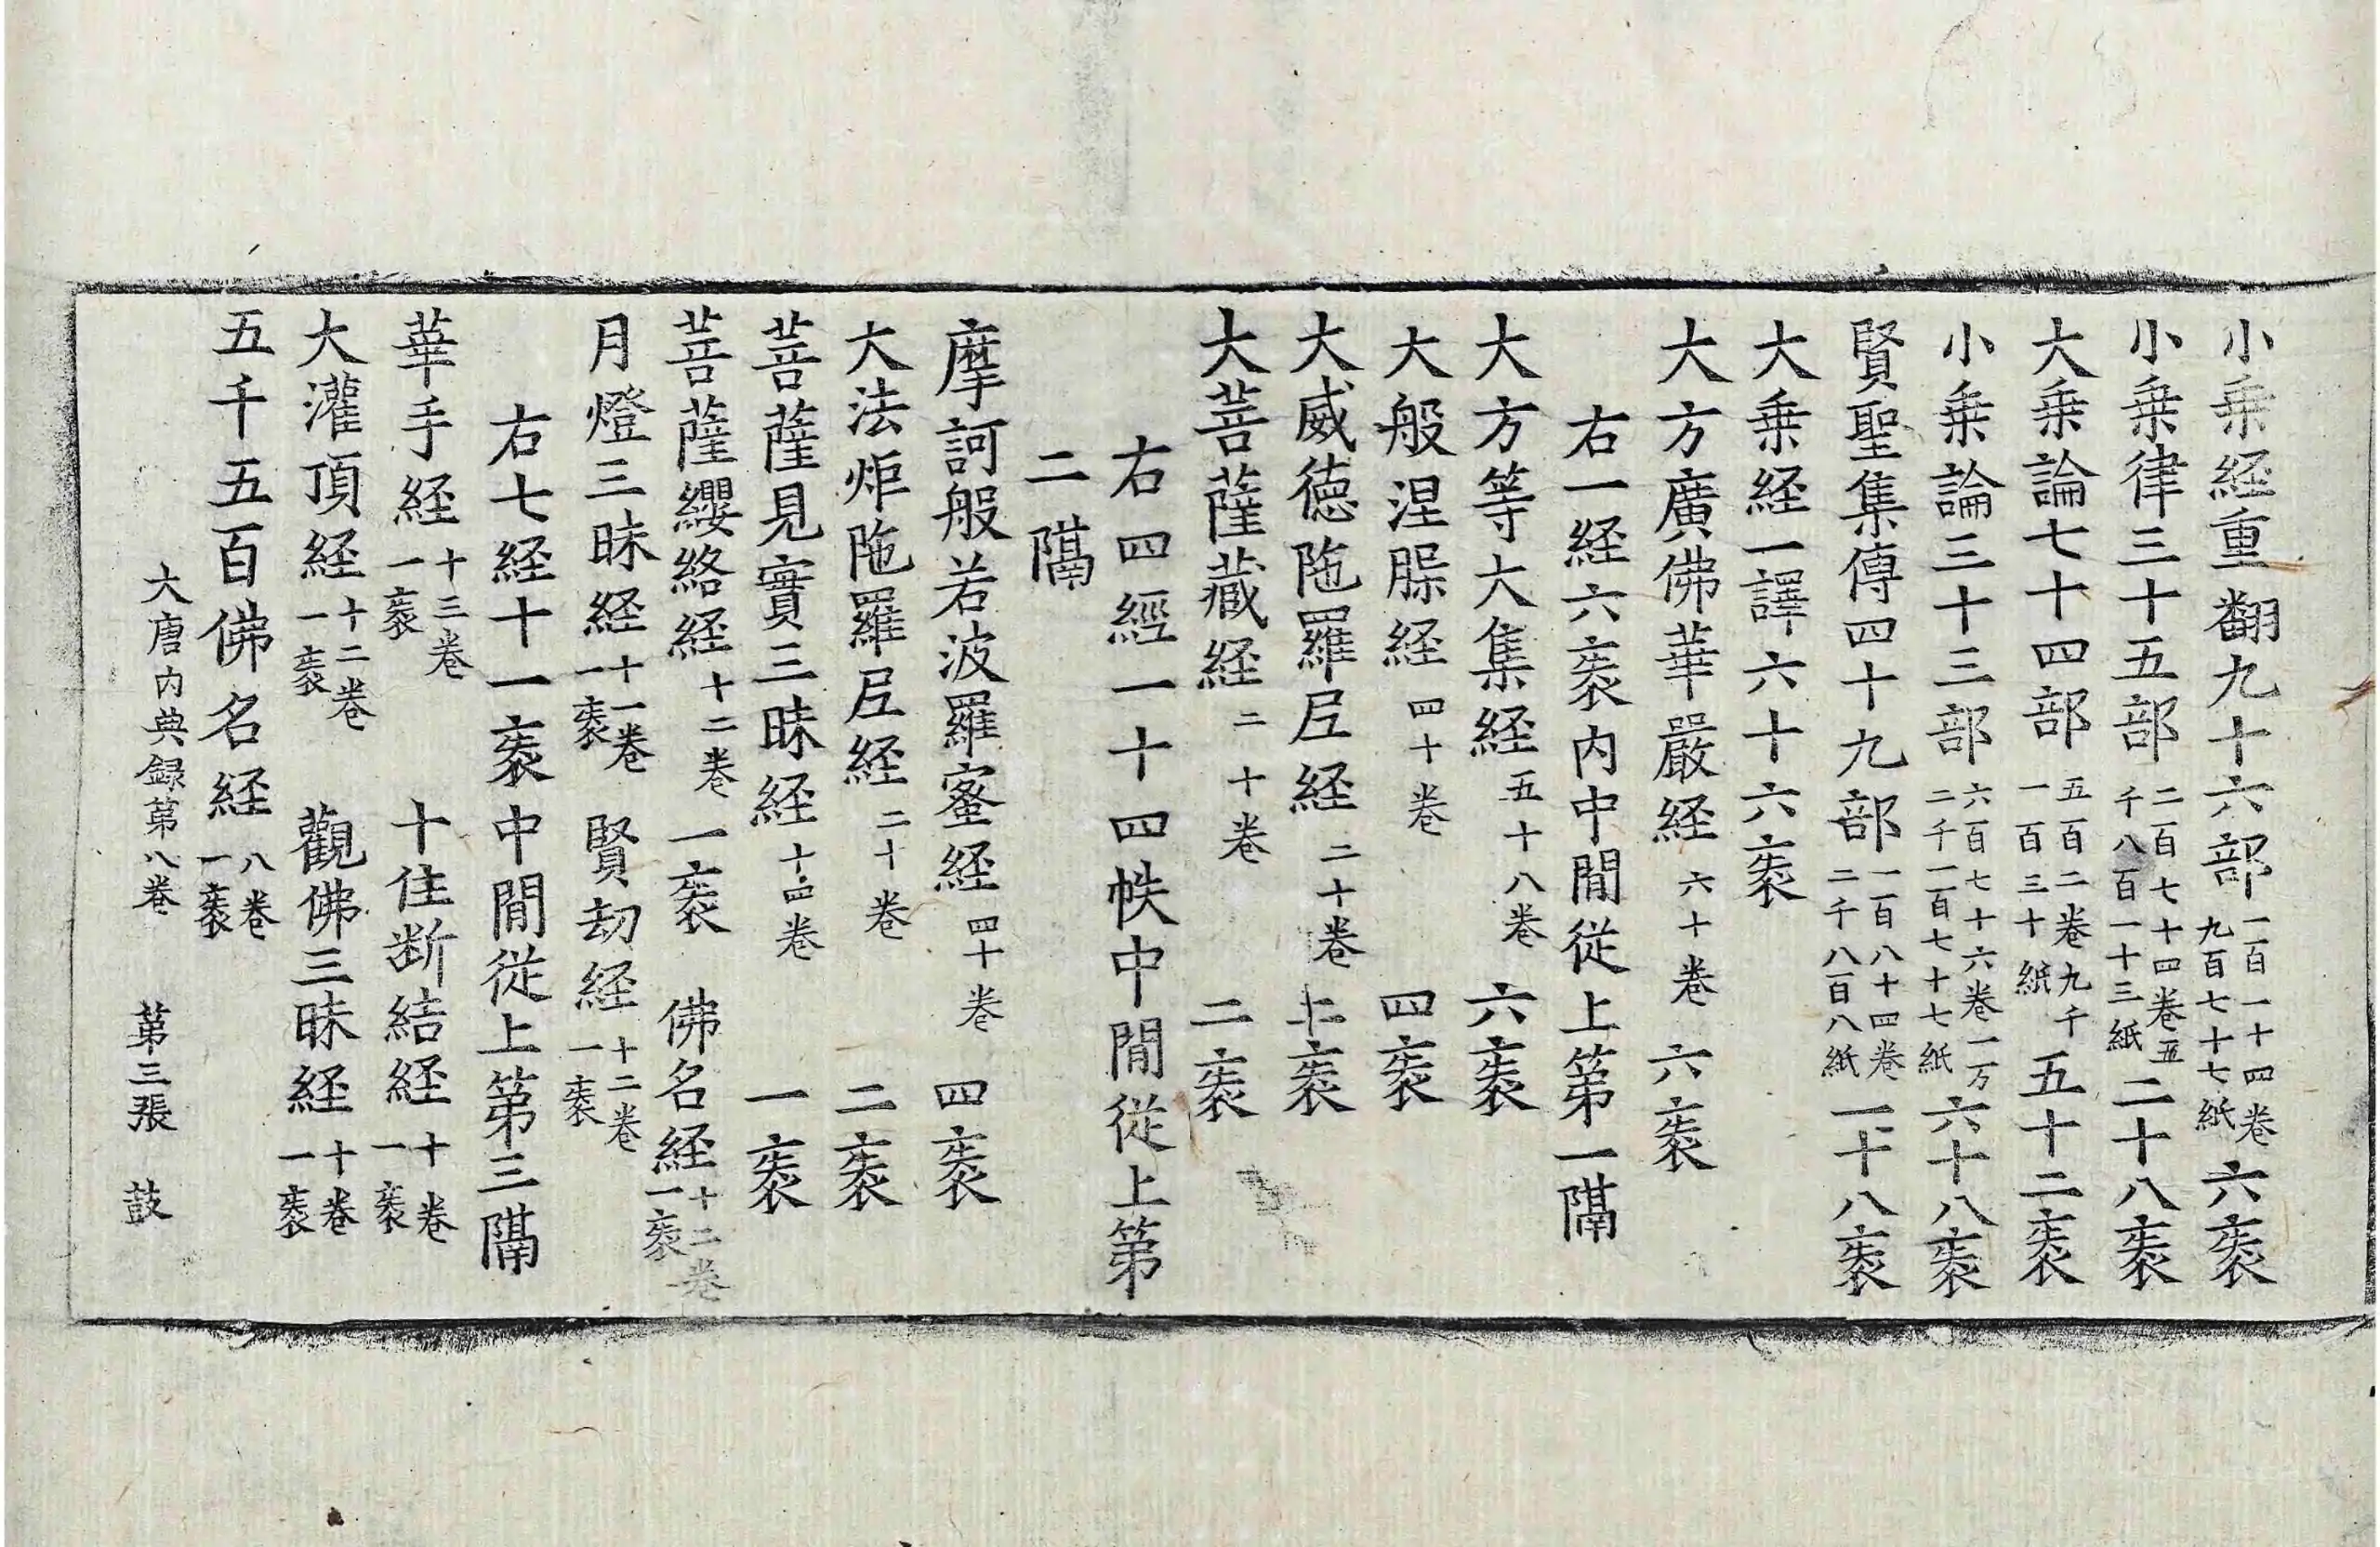 小乗経重翻九十六部一百一十四卷九百七十七紙六袠
小乗律三十五部二百七十四卷五千八百一十三紙二十八袠
大乗論七十四部五百二卷九千一百三十紙五十二袠
小乗論三十三部六百七十六卷一万二千一百七十七紙六十八袠
賢聖集傳四十九部一百八十四卷二千八百八紙一十八袠
大乗経一譯六十六袠
大方廣佛華嚴経六十卷 六袠
右一経六袠内中間従上第一隔
大方等大集経五十八卷 六袠
大般涅槃経四十卷 四袠
大威徳陁羅尼経二十卷 二袠
大菩薩藏経二十卷 二袠
右四經一十四帙中間従上第
二隔
摩訶般若波羅蜜経四十卷 四袠
大法炬陁羅尼経二十卷 二袠
菩薩見實三昧経十四卷 一袠
菩薩纓絡経十二卷 一袠 佛名経十二卷一袠
月燈三昧経十一卷一袠 賢劫経十二卷一袠
右七経十一袠中間従上第三隔
華手経十三卷一袠 十住断結経十卷一袠
大灌頂経十二卷一袠 觀佛三昧経十卷一袠
五千五百佛名経八卷一袠
大唐内典録第八卷 第三張 鼓